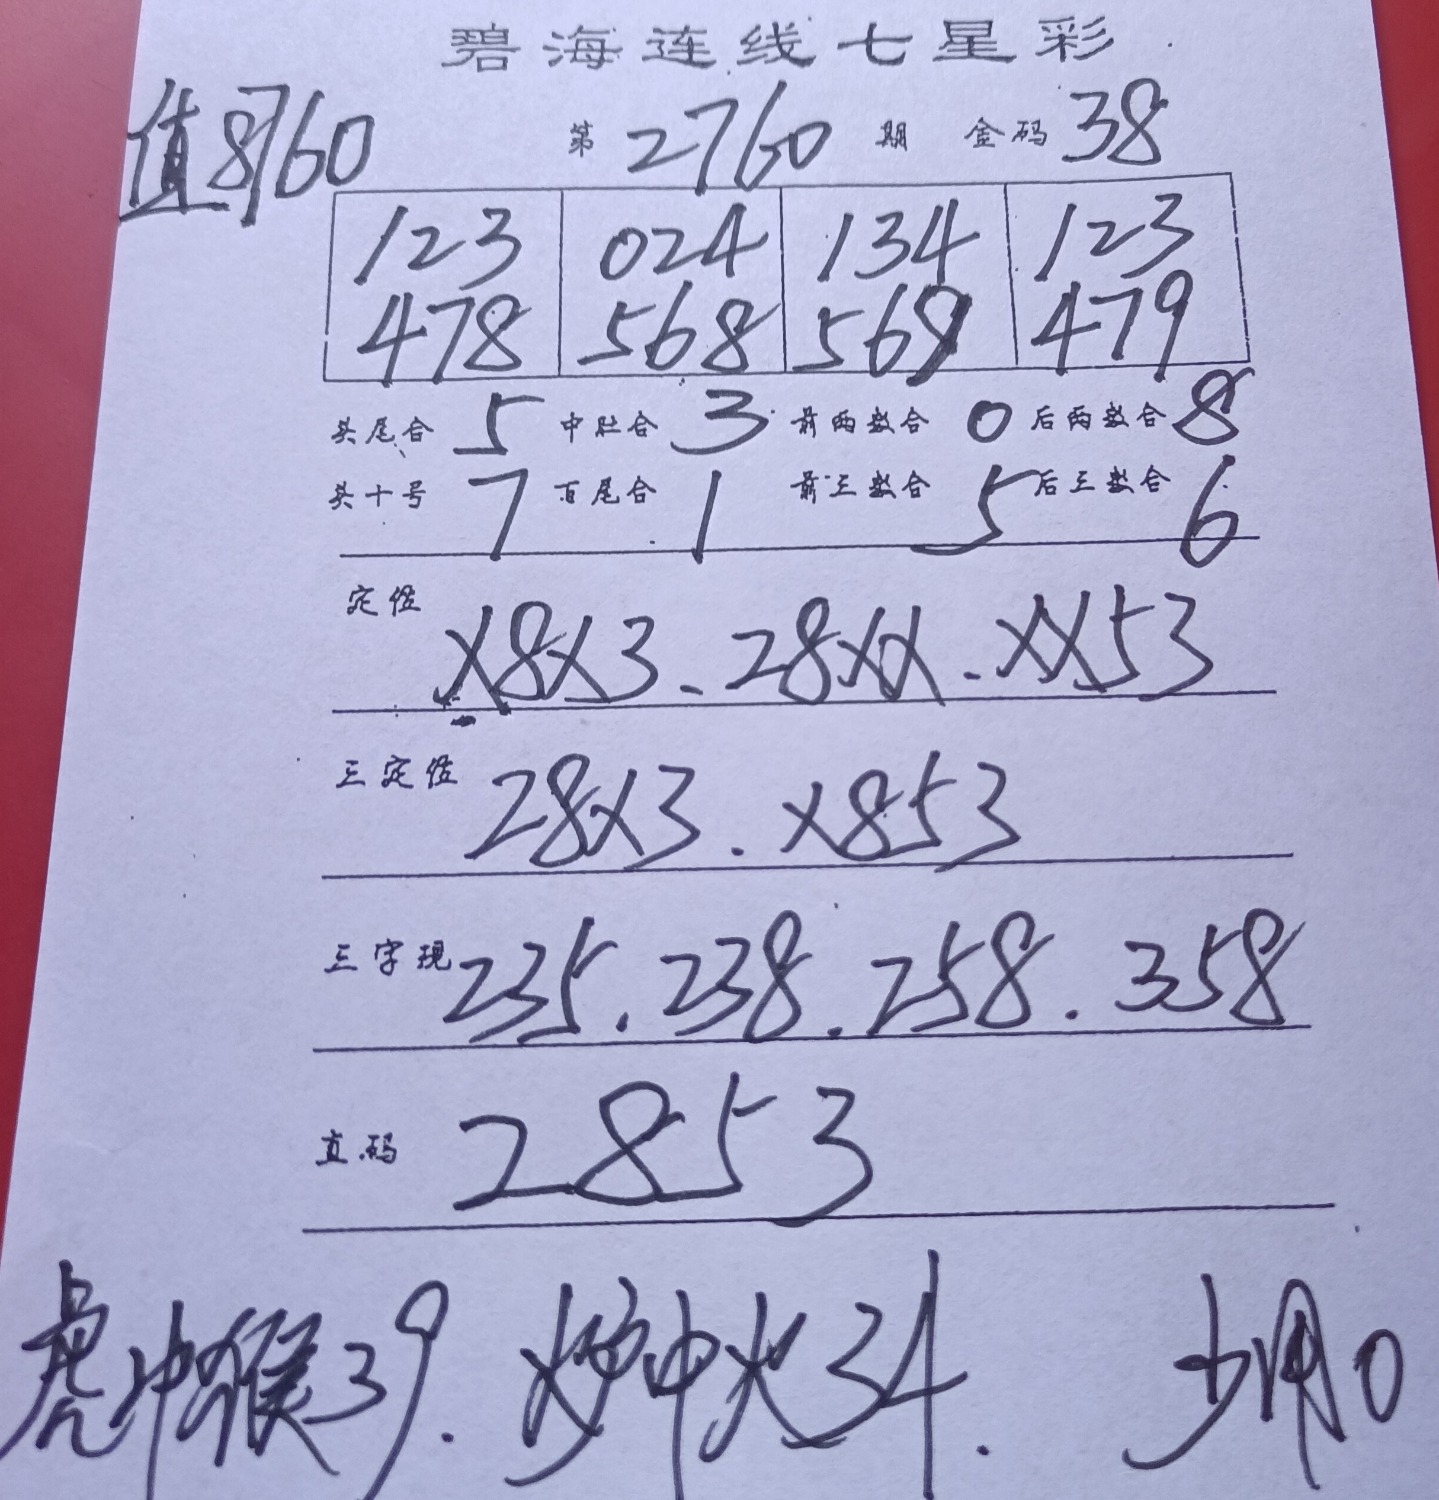 碧海连线七星彩
值8760 第2760期 金码38
123 024 134 123
478 568 569 479
头尾合5 中肚合3 前两数合0 后两数合8
头十号7 百尾合1 前三数合5 后三数合6
定位 X8X3、28XX.XX53
三定位 28X3.X853
三字现 235.238.258.358
直码 2853
虎冲猴39. 炉中火34. 少用0